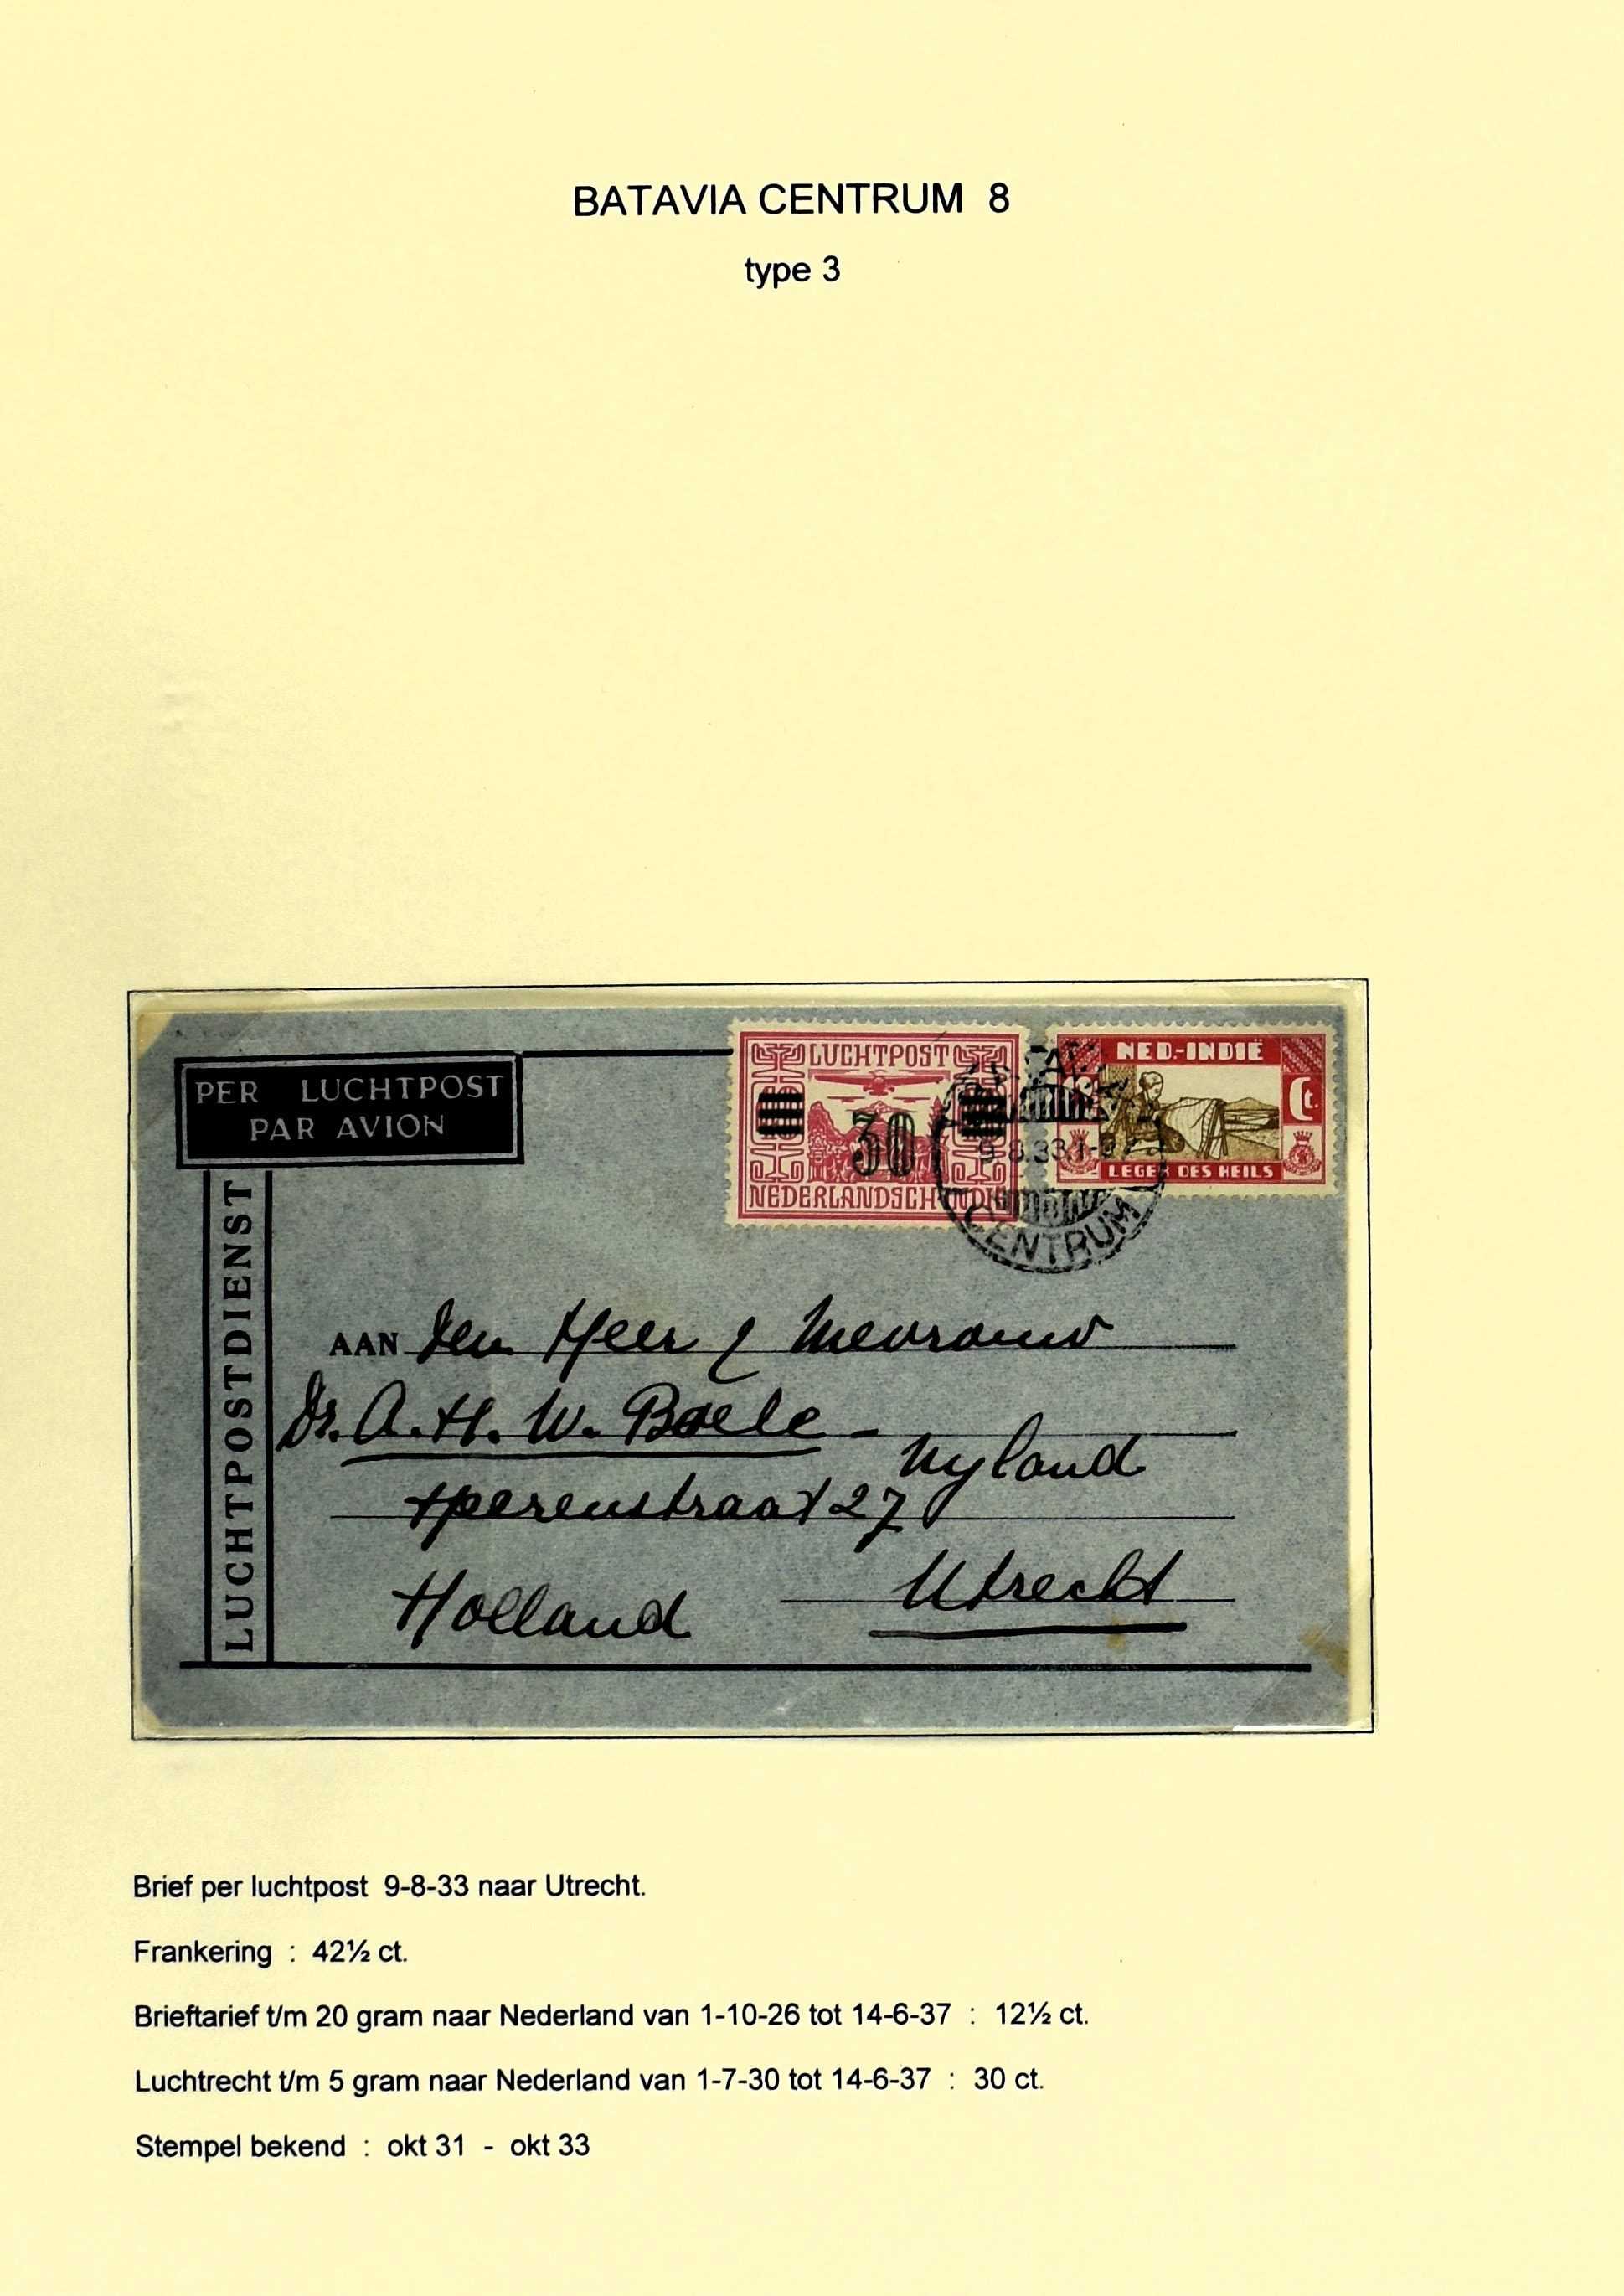 BATAVIA CENTRUM 8
type 3
PER LUCHTPOST
PAR AVION
LUCHTPOSTDIENST
LUCHTPOST
30
NEDERLANDSCH INDIË
NED-INDIË
Ct.
LEGER DES HEILS
9.8.33
CENTRUM
AAN Den Heer & Mevrouw
Dr. A. H. W. Boele -
Nyland
Heerenstraat 27
Utrecht
Holland
Brief per luchtpost 9-8-33 naar Utrecht.
Frankering : 42½ ct.
Brieftarief t/m 20 gram naar Nederland van 1-10-26 tot 14-6-37 : 12½ ct.
Luchtrecht t/m 5 gram naar Nederland van 1-7-30 tot 14-6-37 : 30 ct.
Stempel bekend : okt 31 - okt 33